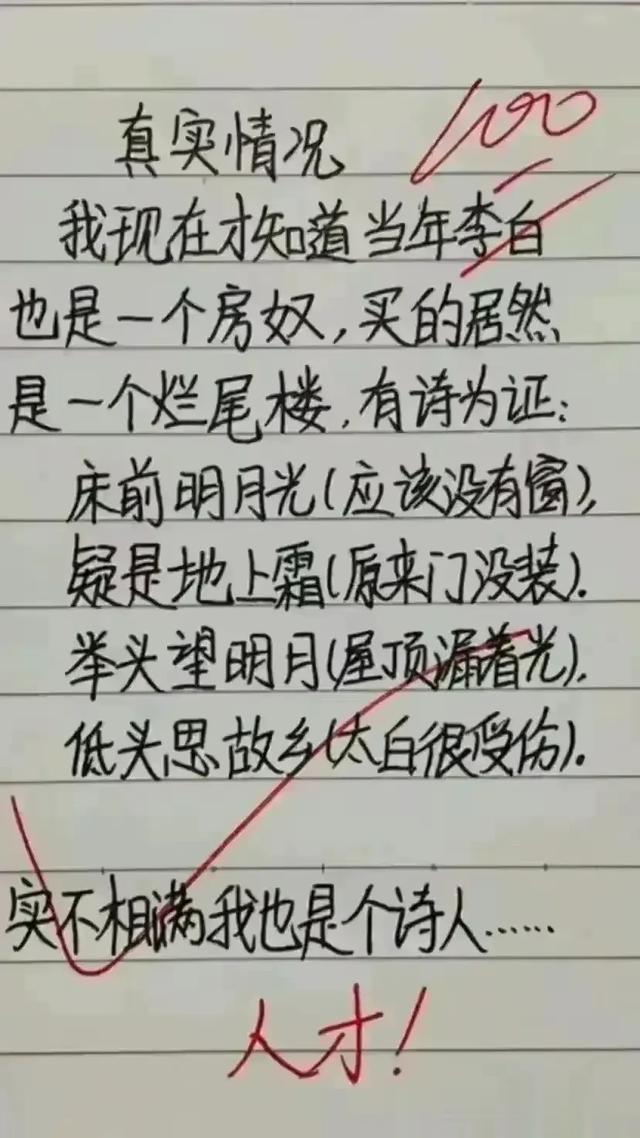 真实情况
100
我现在才知道当年李白
也是一个房奴，买的居然
是一个烂尾楼，有诗为证：
床前明月光(应该没有窗)，
疑是地上霜(原来门没装)．
举头望明月(屋顶漏着光)．
低头思故乡(太白很受伤)．
实不相满我也是个诗人……
人才！